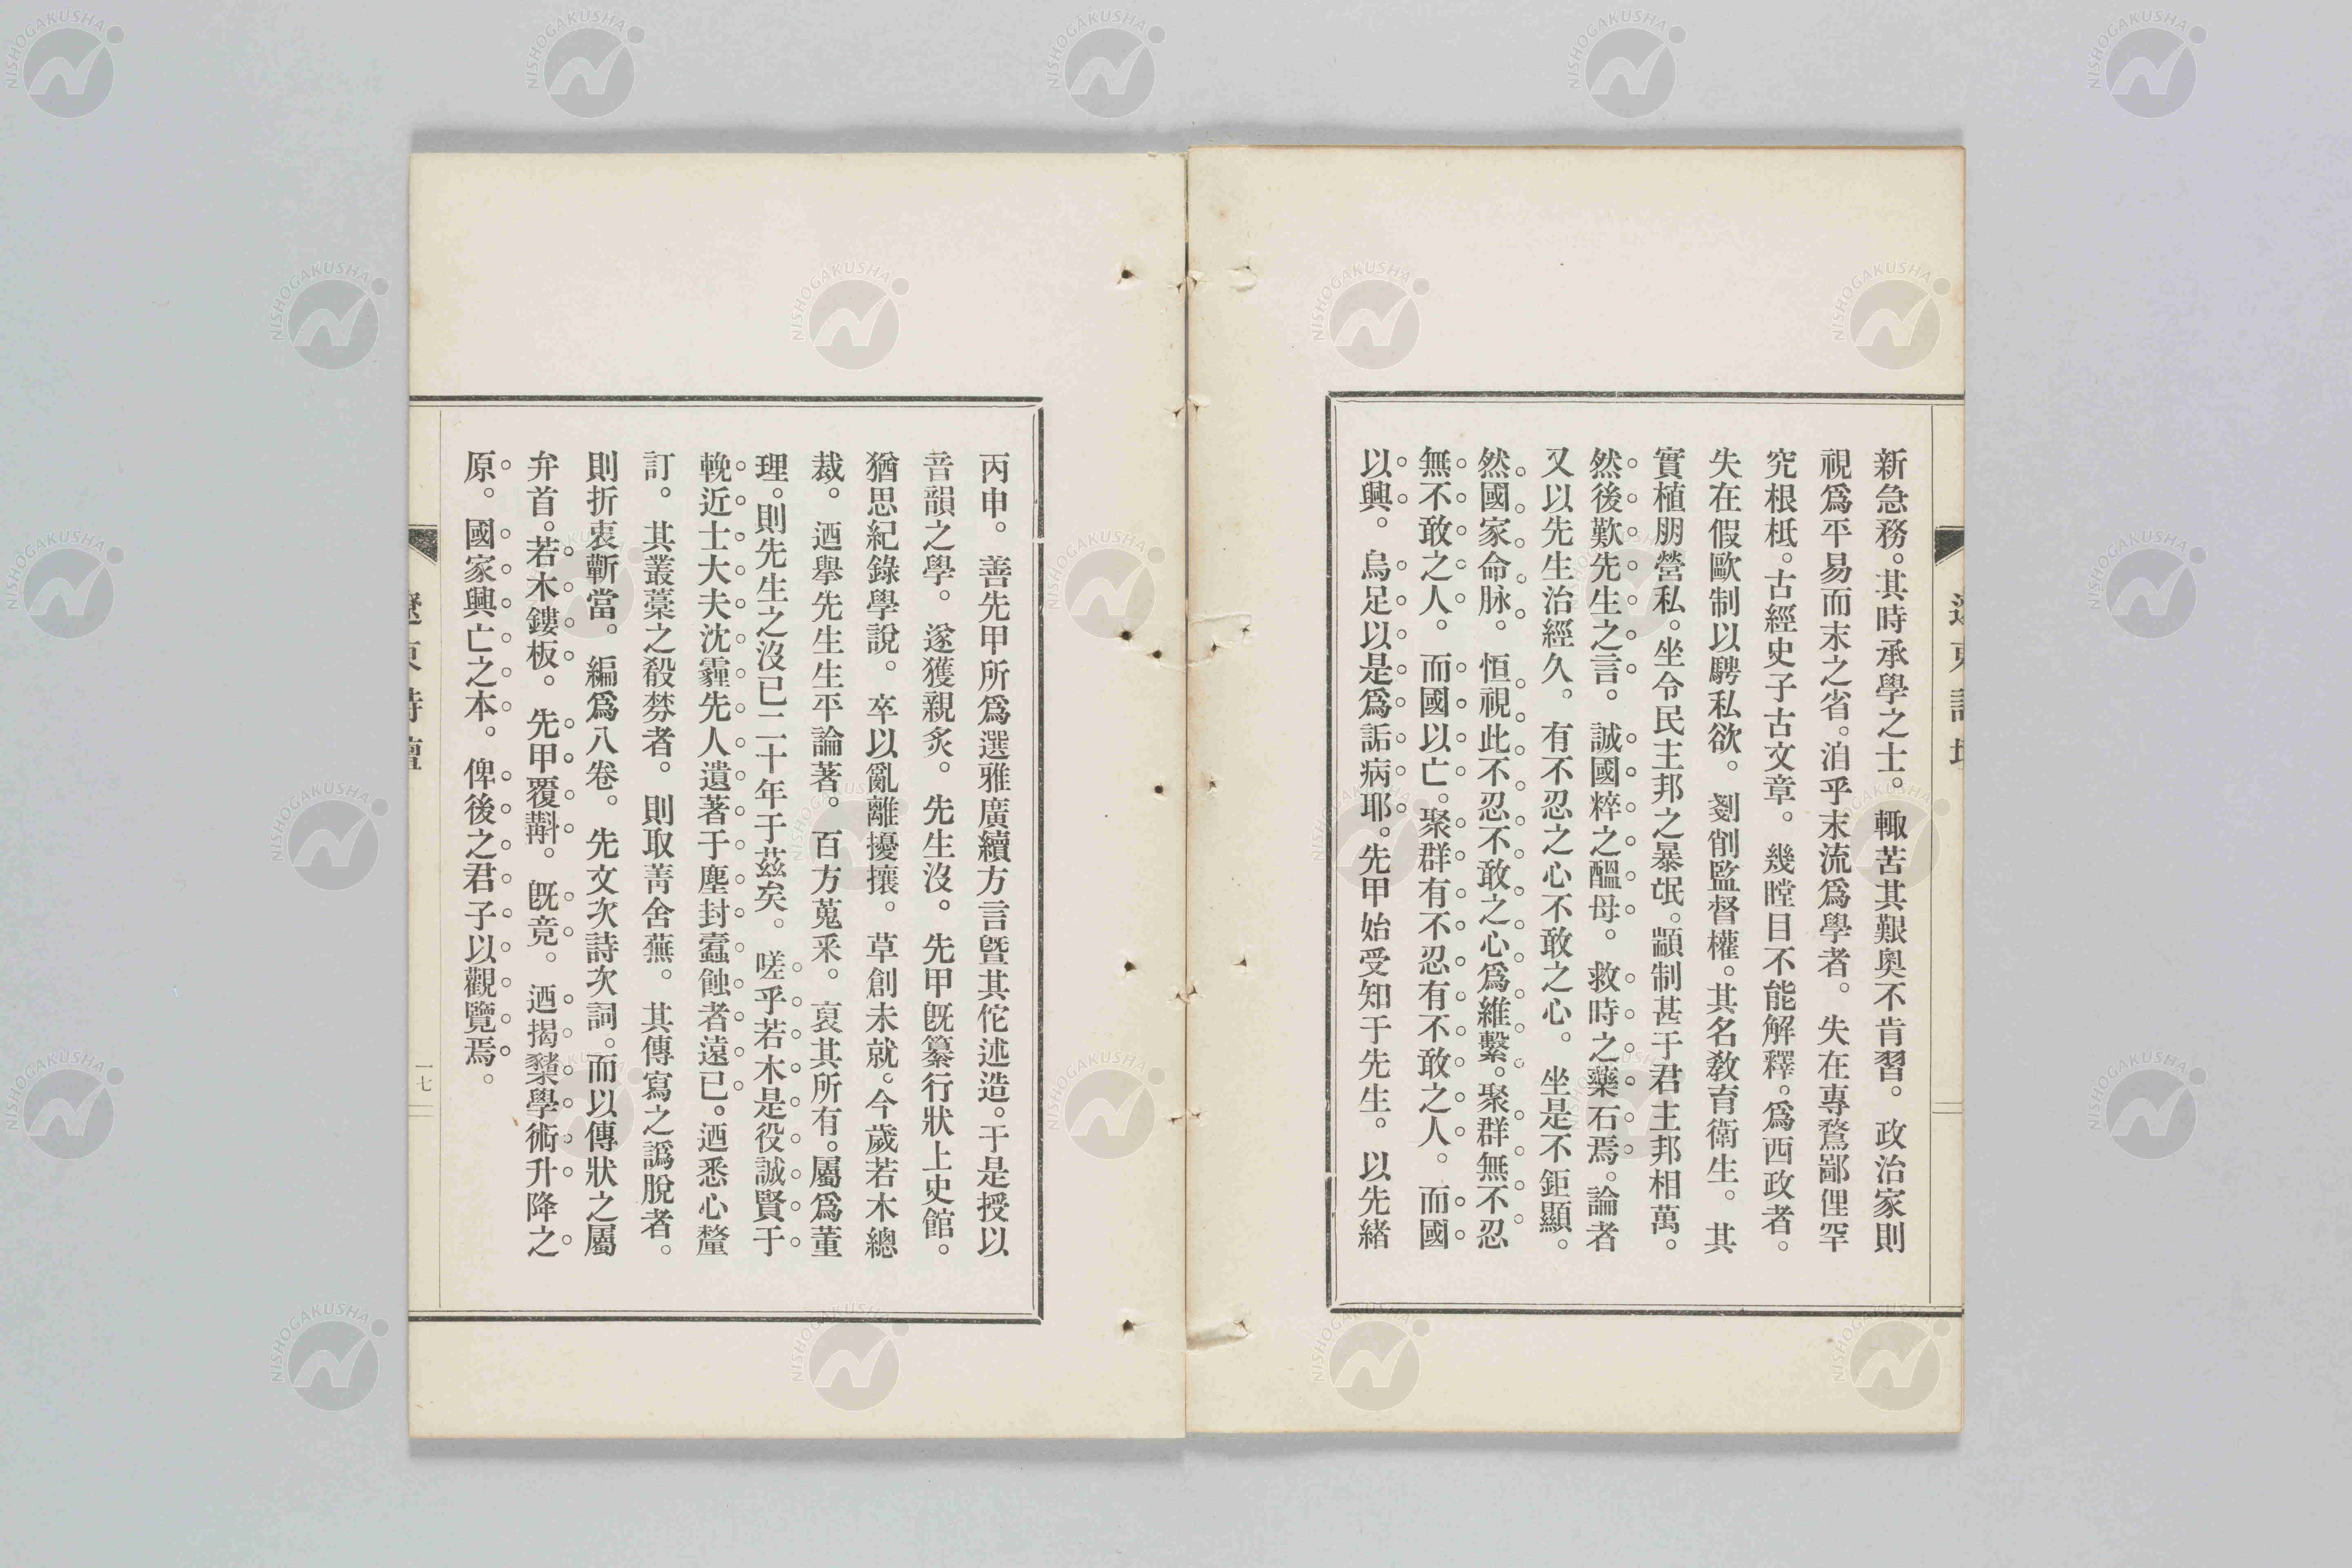 新急務。其時承學之士。輙苦其艱奧不肯習。政治家則
視爲平易而末之省。洎乎末流爲學者。失在專騖鄙俚罕
究根柢。古經史子古文章。幾瞠目不能解釋。爲西政者。
失在假歐制以騁私欲。剗削監督權。其名敎育衛生。其
實植朋營私。坐令民主邦之暴氓。顓制甚于君主邦相萬。
然後歎先生之言。誠國粹之醞母。救時之藥石焉。論者
又以先生治經久。有不忍之心不敢之心。坐是不鉅顯。
然國家命脉。恒視此不忍不敢之心爲維繫。聚群無不忍
無不敢之人。而國以亡。聚群有不忍有不敢之人。而國
以興。烏足以是爲詬病耶。先甲始受知于先生。以先緒
丙申。善先甲所爲選雅廣續方言曁其佗述造。于是授以
音韻之學。遂獲親炙。先生沒。先甲旣纂行狀上史館。
猶思紀錄學說。卒以亂離擾攘。草創未就。今歲若木總
裁。迺擧先生生平論著。百方蒐釆。裒其所有。屬爲董
理。則先生之沒已二十年于茲矣。嗟乎若木是役誠賢于
輓近士大夫沈霾先人遺著于塵封蠹蝕者遠已。迺悉心釐
訂。其叢藁之殽棼者。則取菁舍蕪。其傳寫之譌脫者。
則折衷蘄當。編爲八卷。先文次詩次詞。而以傳狀之屬
弁首。若木鏤板。先甲覆斠。旣竟。迺揭櫫學術升降之
原。國家興亡之本。俾後之君子以觀覽焉。
一七
NISHOGAKUSHA